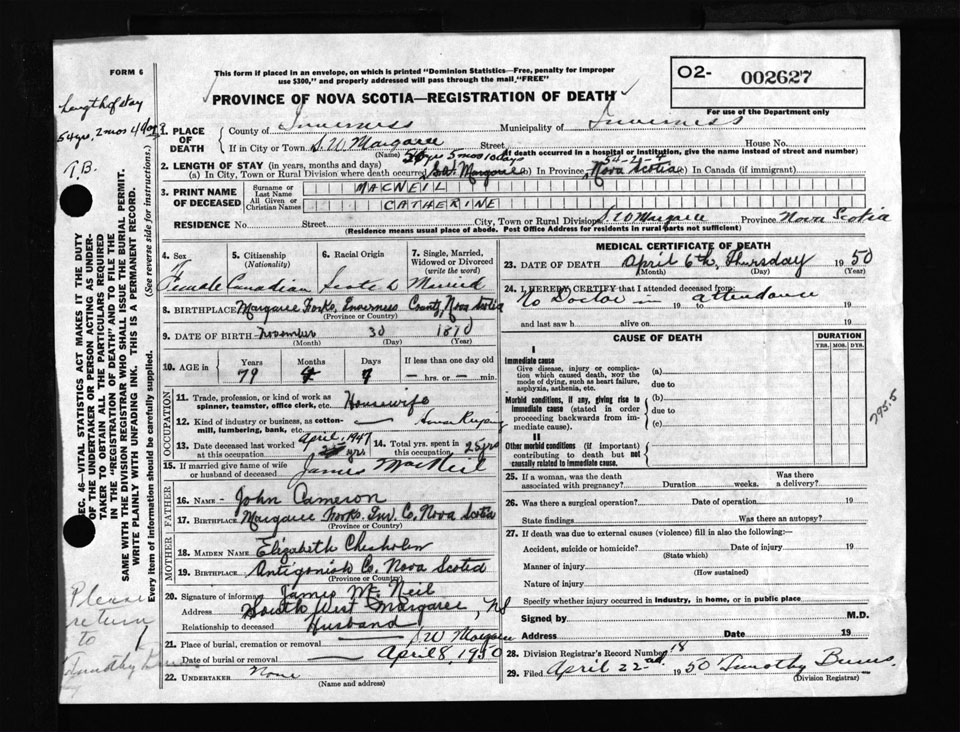 FORM 6
This form if placed in an envelope, on which is printed "Dominion Statistics—Free, penalty for improper use $300," and properly addressed will pass through the mail "FREE"
O2- 002627
For use of the Department only
PROVINCE OF NOVA SCOTIA—REGISTRATION OF DEATH
Length of stay
54 yrs, 2 mos 4 days
T.B.
1. PLACE OF DEATH
County of Inverness Municipality of Inverness
If in City or Town S. W Margaree Street House No.
(Name) If death occurred in a hospital or institution, give the name instead of street and number)
2. LENGTH OF STAY (in years, months and days) 5 mos 10 days 54-2-4
(a) In City, Town or Rural Division where death occurred S.W. Margaree (b) In Province Nova Scotia (c) In Canada (if immigrant)
3. PRINT NAME OF DECEASED
Surname or Last Name MACNEIL
All Given or Christian Names CATHERINE
RESIDENCE No. Street City, Town or Rural Division S W Margaree Province Nova Scotia
(Residence means usual place of abode. Post Office Address for residents in rural parts not sufficient)
SEC. 46 VITAL STATISTICS ACT MAKES IT THE DUTY OF THE UNDERTAKER OR PERSON ACTING AS UNDERTAKER TO OBTAIN ALL THE PARTICULARS REQUIRED IN THE "REGISTRATION OF DEATH" AND TO FILE THE SAME WITH THE DIVISION REGISTRAR WHO SHALL ISSUE THE BURIAL PERMIT.
WRITE PLAINLY WITH UNFADING INK. THIS IS A PERMANENT RECORD.
Every item of information should be carefully supplied. (See reverse side for instructions.)
4. Sex F Female
5. Citizenship (Nationality) Canadian
6. Racial Origin Scotch
7. Single, Married, Widowed or Divorced (write the word) Married
8. BIRTHPLACE Margaree Forks, Inverness County, Nova Scotia
(Province or Country)
9. DATE OF BIRTH November 30 1870
(Month) (Day) (Year)
10. AGE in Years Months Days If less than one day old
79 4 7 — hrs. or — min.
OCCUPATION
11. Trade, profession, or kind of work as spinner, teamster, office clerk, etc. Housewife
12. Kind of industry or business, as cotton-mill, lumbering, bank, etc. House Keeping
13. Date deceased last worked at this occupation April, 1947
14. Total yrs. spent in this occupation 25 yrs
15. If married give name of wife or husband of deceased James MacNeil
FATHER
16. NAME John Cameron
17. BIRTHPLACE Margaree Forks, Inv. Co, Nova Scotia
(Province or Country)
MOTHER
18. MAIDEN NAME Elizabeth Chisholm
19. BIRTHPLACE Antigonish Co, Nova Scotia
(Province or Country)
20. Signature of informant James Mc Neil
Address South West Margaree, NS
Relationship to deceased Husband
21. Place of burial, cremation or removal S W Margaree
Date of burial or removal April 8, 1950
22. UNDERTAKER None
(Name and address)
Please return to Timothy
MEDICAL CERTIFICATE OF DEATH
23. DATE OF DEATH April 6th, Thursday 1950
(Month) (Day) (Year)
24. I HEREBY CERTIFY that I attended deceased from:
No Doctor in attendance
19 to 19
and last saw h alive on 19
CAUSE OF DEATH
DURATION
YRS. MOS. DYS.
I
Immediate cause
Give disease, injury or complication which caused death, NOT the mode of dying, such as heart failure, asphyxia, asthenia, etc.
(a)
due to
Morbid conditions, if any, giving rise to immediate cause (stated in order proceeding backwards from immediate cause).
(b)
due to
(c)
II
Other morbid conditions (if important) contributing to death but not causally related to immediate cause.
795.5
25. If a woman, was the death associated with pregnancy? Duration weeks. Was there a delivery?
26. Was there a surgical operation? Date of operation 19
State findings Was there an autopsy?
27. If death was due to external causes (violence) fill in also the following:—
Accident, suicide or homicide? Date of injury 19
(State which)
Manner of injury
(How sustained)
Nature of injury
Specify whether injury occurred in industry, in home, or in public place
Signed by M.D.
Address Date 19
28. Division Registrar's Record Number 18
29. Filed April 22nd 1950 Timothy Burns.
(Division Registrar)